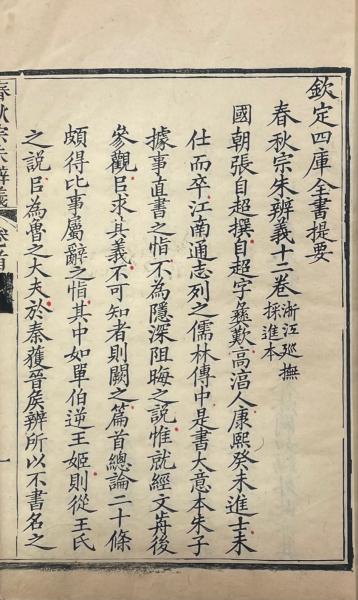 欽定四庫全書提要
春秋宗朱辨義十二卷 浙江廵撫採進本
國朝張自超撰自超字彝歎高淳人康熙癸未進士未
仕而卒江南通志列之儒林傳中是書大意本朱子
據事直書之㫖不為隱深阻晦之說惟就經文前後
參觀以求其義不可知者則闕之篇首總論二十條
頗得比事屬辭之㫖其中如單伯逆王姬則從王氏
之說以為魯之大夫於秦獲晉侯辨所以不書名之
春秋宗朱辨義 卷首
一